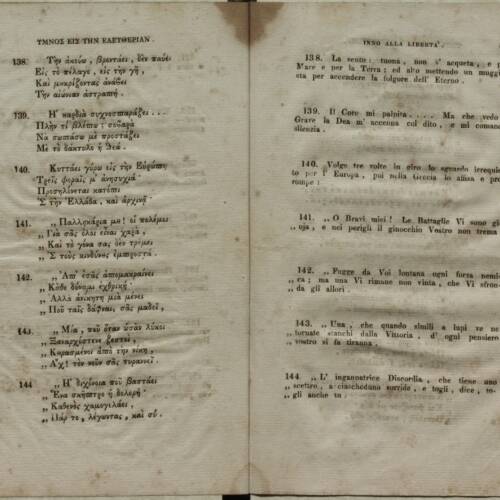 ΥΜΝΟΣ ΕΙΣ ΤΗΝ ΕΛΕΥΘΕΡΙΑΝ.
138. Τὴν ἀκούω, βροντάει, δὲν παύει
Εἰς τὸ πέλαγο, εἰς τὴ γῆ,
Καὶ μουγκρίζοντας ἀνάβει
Τὴν αἰώνιαν ἀστραπή.
139. Ἡ καρδιὰ συχνοσπαράζει . . .
Πλὴν τί βλέπω; σοβαρὰ
Νὰ σωπάσω μὲ προστάζει
Μὲ τὸ δάκτυλο ἡ Θεά.
140. Κυττάει γύρω εἰς τὴν Εὐρώπη
Τρεῖς φοραῖς μ' ἀνησυχιά·
Προσηλώνεται κατόπι
Σ τὴν Ἑλλάδα, καὶ ἀρχινᾷ·
141. „ Παλληκάρια μου! οἱ πολέμοι
„ Γιὰ σᾶς ὅλοι εἶναι χαρὰ,
„ Καὶ τὸ γόνα σας δὲν τρέμει
„ Σ τοὺς κινδύνους ἐμπροστά.
142. „ Ἀπ' ἐσᾶς ἀπομακραίνει
„ Κάθε δύναμι ἐχθρική·
„ Ἀλλὰ ἀνίκητη μιὰ μένει
„ Ποῦ ταῖς δάφναις σᾶς μαδεῖ,
143. „ Μία, ποῦ ὅταν ὡσὰν λύκοι
„ Ξαναρχόστενε ζεστοὶ,
„ Κουρασμένοι ἀπὸ τὴν νίκη,
„ Ἄχ! τὸν νοῦν σᾶς τυραννεῖ.
144 „ Ἡ διχόνοια ποῦ βαστάει
„ Ἕνα σκῆπτρο ἡ δολερὴ·
„ Καθενὸς χαμογελάει,
„ Πάρ το, λέγωντας, καὶ σύ.
INNO ALLA LIBERTA'.
138. La sento: tuona, non s' acqueta, e p
Mare e per la Terra; ed alto mettendo un mugg
età per accendere la folgore dell' Eterno.
139. Il Core mi palpita . . . . Ma che vedo
Grave la Dea m' accenna col dito, e mi coman
silenzia.
140. Volge tre volte in giro lo sguardo irrequie
to per l' Europa, poi nella Grecia lo affisa e pr
rompe:
141. „ O Bravi miei! Le Battaglie Vi son gi
„ oja, e nei perigli il ginocchio Vostro non trema
142. „ Fugge da Voi lontana ogni forza nemi
„ ca; ma una Vi rimane non vinta, che Vi sfron-
„ da gli allori.
143. „ Una, che quando simili a lupi ve ne
„ tornate stanchi dalla Vittoria, d' ogni pensiero
„ vostro si fa tiranna.
144. „ L' ingannatrice Discordia, che tiene uno
„ scettro, a ciascheduno sorride, e togli, dice, to-
„ gli anche tu: